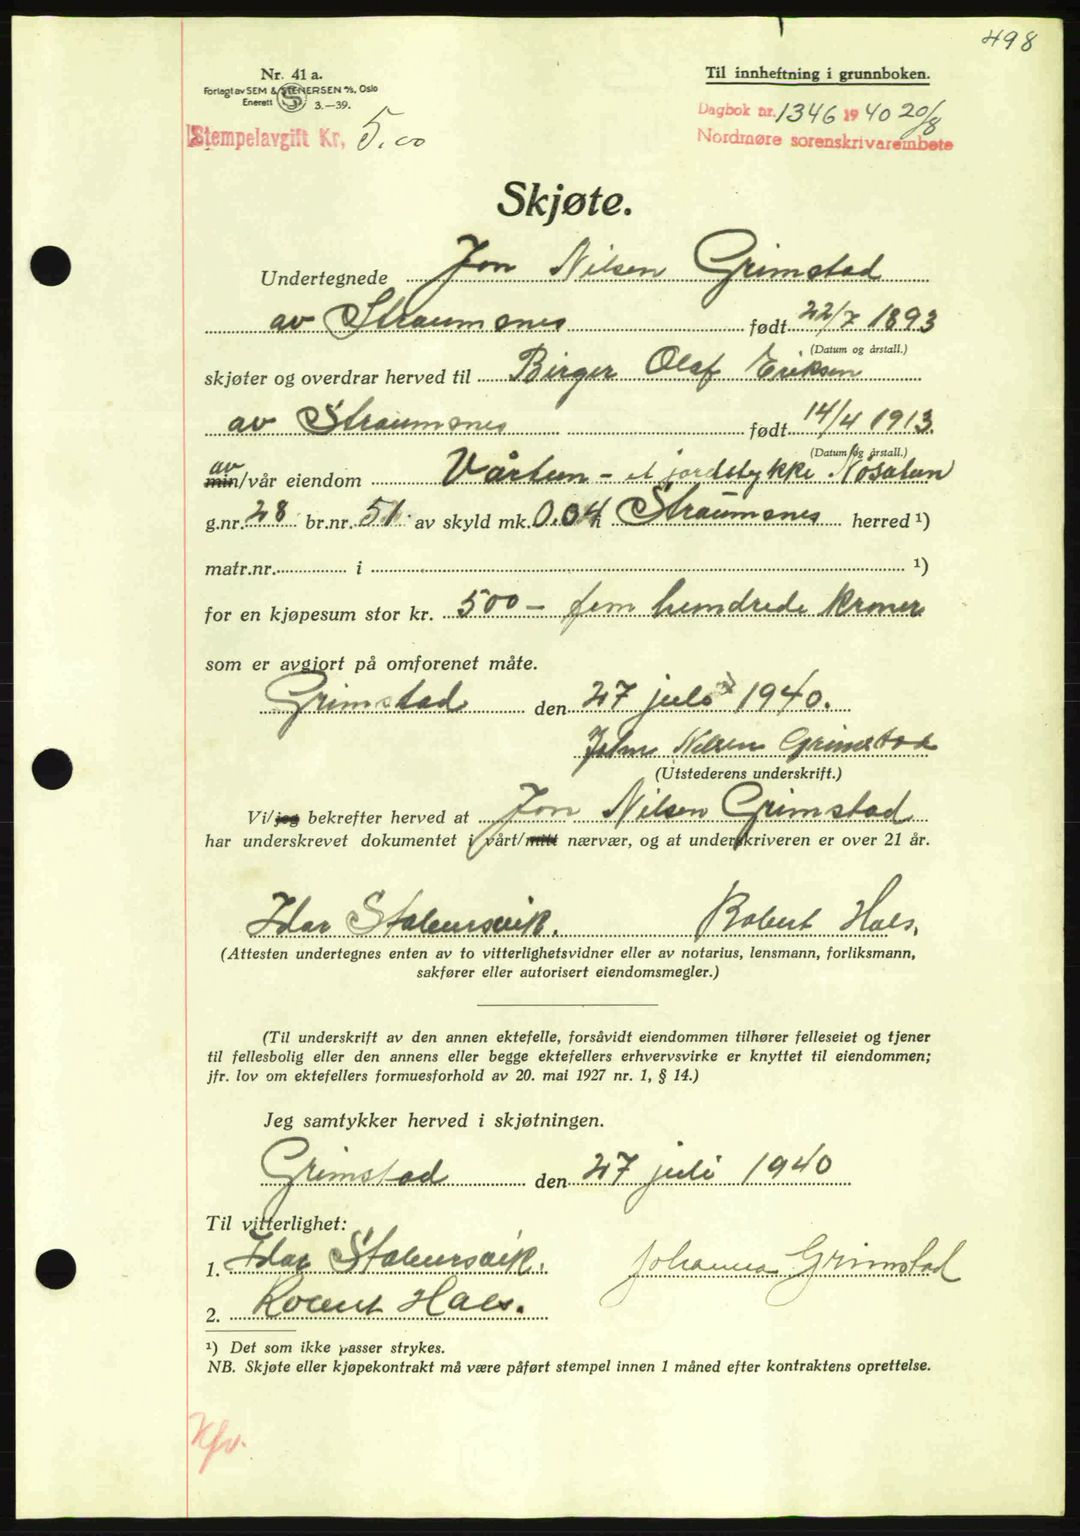 498
Nr. 41 a.
Forlagt av SEM & STENERSEN A/S, Oslo
Enerett 3.—39.
Til innheftning i grunnboken.
Stempelavgift Kr. 5.00
Dagbok nr. 1346 1940 20/8
Nordmøre sorenskrivarembete
Skjøte.
Undertegnede Jon Nilsen Grimstad
av Straumsnes født 22/7 1893
(Datum og årstall.)
skjøter og overdrar herved til Birger Olaf Eriksen
av Straumsnes født 14/4 1913.
(Datum og årstall.)
av
min/vår eiendom Vårtun - et jordstykke
g.nr. 28 br.nr. 51. av skyld mk. 0.04 i Straumsnes herred ¹)
matr.nr. i ¹)
for en kjøpesum stor kr. 500 - fem hundrede kroner
som er avgjort på omforenet måte.
Grimstad den 27 juli 1940.
John Nilsen Grimstad
(Utstederens underskrift.)
Vi/jeg bekrefter herved at Jon Nilsen Grimstad
har underskrevet dokumentet i vårt/mitt nærvær, og at underskriveren er over 21 år.
Idar Stokersvik. Robert Hals.
(Attesten undertegnes enten av to vitterlighetsvidner eller av notarius, lensmann, forliksmann,
sakfører eller autorisert eiendomsmegler.)
(Til underskrift av den annen ektefelle, forsåvidt eiendommen tilhører felleseiet og tjener
til fellesbolig eller den annens eller begge ektefellers erhvervsvirke er knyttet til eiendommen;
jfr. lov om ektefellers formuesforhold av 20. mai 1927 nr. 1, § 14.)
Jeg samtykker herved i skjøtningen.
Grimstad den 27 juli 1940
Til vitterlighet:
1. Idar Stokersvik. Johanna Grimstad
2. Robert Hals.
¹) Det som ikke passer strykes.
NB. Skjøte eller kjøpekontrakt må være påført stempel innen 1 måned efter kontraktens oprettelse.